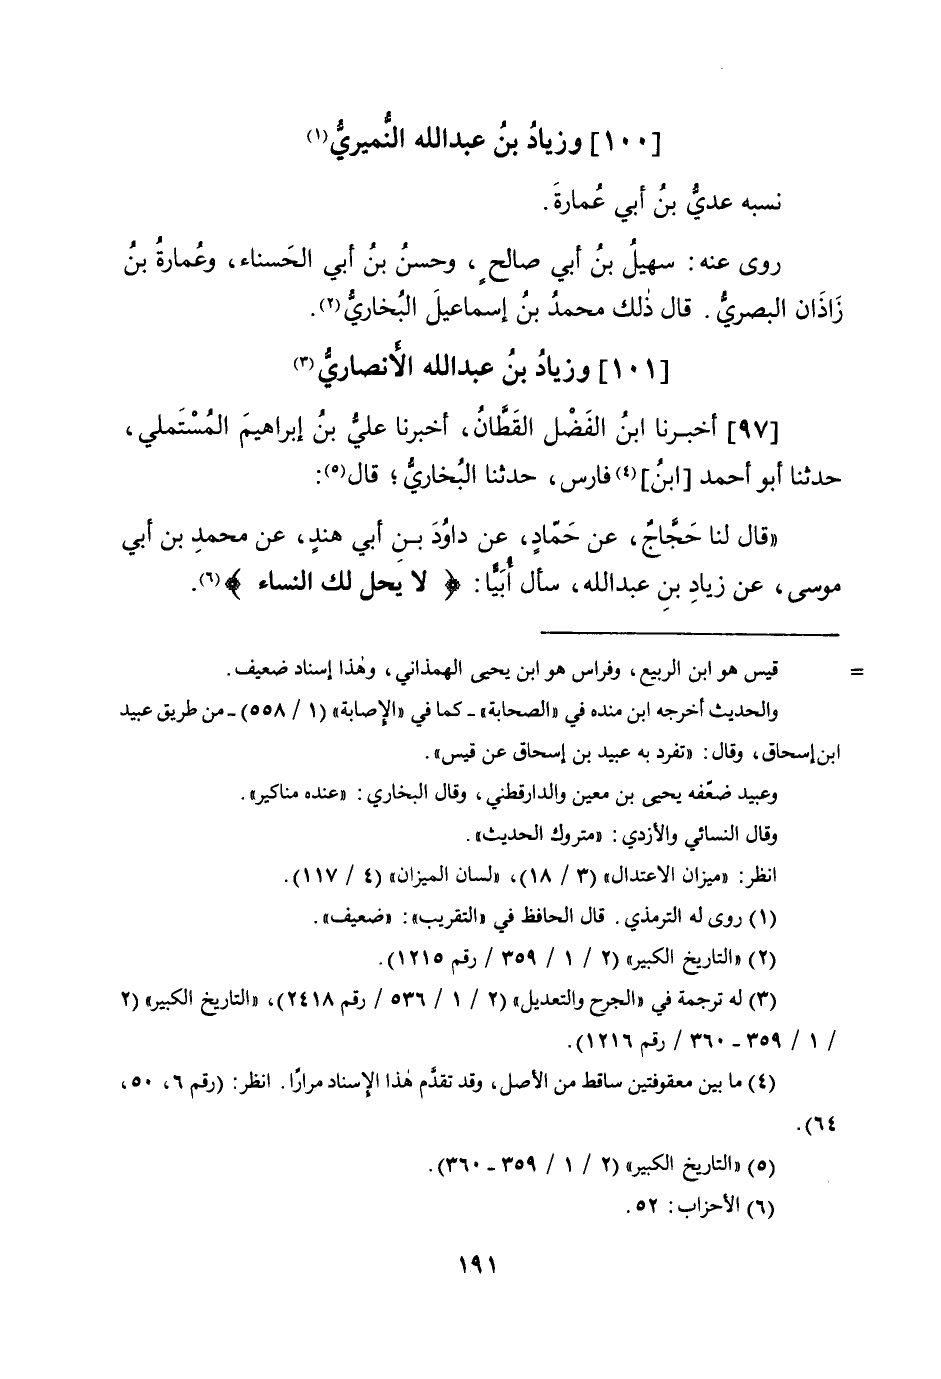 [١٠٠] وزيادُ بنُ عبدالله النُّميريُّ(١)
نسبه عديُّ بنُ أبي عُمارةَ.
روى عنه: سهيلُ بنُ أبي صالحٍ، وحسنُ بنُ أبي الحَسناء، وعُمارةُ بنُ
زَاذَان البصريُّ. قال ذٰلك محمدُ بنُ إسماعيلَ البُخاريُّ(٢).
[١٠١] وزيادُ بنُ عبدالله الأَنصاريُّ(٣)
[٩٧] أخبرنا ابنُ الفَضْل القَطَّانُ، أخبرنا عليُّ بنُ إبراهيمَ المُسْتَملي،
حدثنا أبو أحمد [ابنُ](٤) فارس، حدثنا البُخاريُّ؛ قال(٥):
«قال لنا حَجَّاجٌ، عن حَمّادٍ، عن داوُدَ بنِ أبي هندٍ، عن محمدِ بن أبي
موسى، عن زيادِ بنِ عبدالله، سأل أُبَيًّا: ﴿ لا يحل لك النساء ﴾»(٦).
= قيس هو ابن الربيع، وفراس هو ابن يحيى الهمذاني، وهٰذا إسناد ضعيف.
والحديث أخرجه ابن منده في «الصحابة» ـ كما في «الإصابة» (١ / ٥٥٨) ـ من طريق عبيد
ابن إسحاق، وقال: «تفرد به عبيد بن إسحاق عن قيس».
وعبيد ضعّفه يحيى بن معين والدارقطني، وقال البخاري: «عنده مناكير».
وقال النسائي والأزدي: «متروك الحديث».
انظر: «ميزان الاعتدال» (٣ / ١٨)، «لسان الميزان» (٤ / ١١٧).
(١) روى له الترمذي. قال الحافظ في «التقريب»: «ضعيف».
(٢) «التاريخ الكبير» (٢ / ١ / ٣٥٩ / رقم ١٢١٥).
(٣) له ترجمة في «الجرح والتعديل» (٢ / ١ / ٥٣٦ / رقم ٢٤١٨)، «التاريخ الكبير» (٢
/ ١ / ٣٥٩ ـ ٣٦٠ / رقم ١٢١٦).
(٤) ما بين معقوفتين ساقط من الأصل، وقد تقدَّم هٰذا الإسناد مرارًا. انظر: (رقم ٦، ٥٠،
٦٤).
(٥) «التاريخ الكبير» (٢ / ١ / ٣٥٩ ـ ٣٦٠).
(٦) الأحزاب: ٥٢.
١٩١